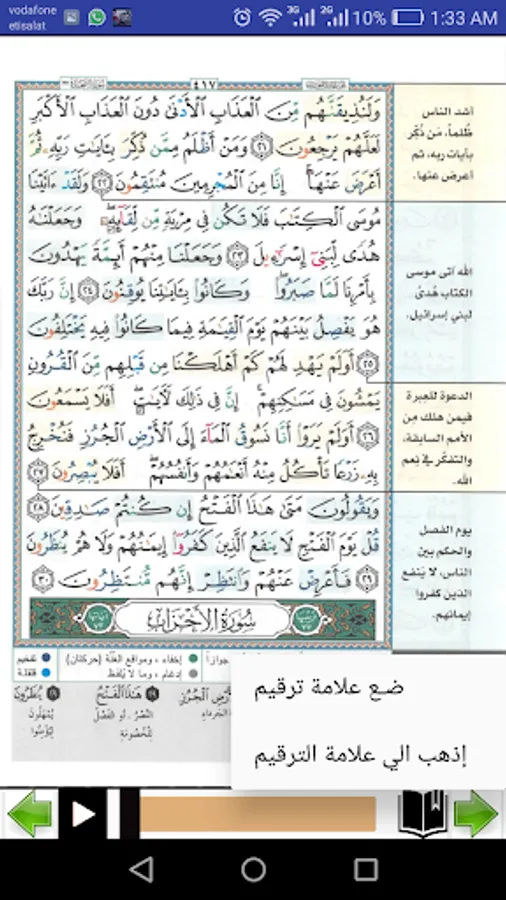 vodafone
etisalat
3G 2G 10% 1:33 AM
٤١٧
وَلَنُذِيقَنَّهُم مِّنَ الْعَذَابِ الْأَدْنَىٰ دُونَ الْعَذَابِ الْأَكْبَرِ
لَعَلَّهُمْ يَرْجِعُونَ ٢١ وَمَنْ أَظْلَمُ مِمَّن ذُكِّرَ بِـَٔايَٰتِ رَبِّهِۦ ثُمَّ
أَعْرَضَ عَنْهَآ إِنَّا مِنَ الْمُجْرِمِينَ مُنتَقِمُونَ ٢٢ وَلَقَدْ ءَاتَيْنَا
مُوسَى الْكِتَٰبَ فَلَا تَكُن فِى مِرْيَةٍ مِّن لِّقَآئِهِۦ وَجَعَلْنَٰهُ
هُدًى لِّبَنِىٓ إِسْرَٰٓءِيلَ ٢٣ وَجَعَلْنَا مِنْهُمْ أَئِمَّةً يَهْدُونَ
بِأَمْرِنَا لَمَّا صَبَرُوا۟ وَكَانُوا۟ بِـَٔايَٰتِنَا يُوقِنُونَ ٢٤ إِنَّ رَبَّكَ
هُوَ يَفْصِلُ بَيْنَهُمْ يَوْمَ الْقِيَٰمَةِ فِيمَا كَانُوا۟ فِيهِ يَخْتَلِفُونَ
٢٥ أَوَلَمْ يَهْدِ لَهُمْ كَمْ أَهْلَكْنَا مِن قَبْلِهِم مِّنَ الْقُرُونِ
يَمْشُونَ فِى مَسَٰكِنِهِمْ إِنَّ فِى ذَٰلِكَ لَـَٔايَٰتٍ أَفَلَا يَسْمَعُونَ
٢٦ أَوَلَمْ يَرَوْا۟ أَنَّا نَسُوقُ الْمَآءَ إِلَى الْأَرْضِ الْجُرُزِ فَنُخْرِجُ
بِهِۦ زَرْعًا تَأْكُلُ مِنْهُ أَنْعَٰمُهُمْ وَأَنفُسُهُمْ أَفَلَا يُبْصِرُونَ ٢٧
وَيَقُولُونَ مَتَىٰ هَٰذَا الْفَتْحُ إِن كُنتُمْ صَٰدِقِينَ ٢٨
قُلْ يَوْمَ الْفَتْحِ لَا يَنفَعُ الَّذِينَ كَفَرُوٓا۟ إِيمَٰنُهُمْ وَلَا هُمْ يُنظَرُونَ
٢٩ فَأَعْرِضْ عَنْهُمْ وَانتَظِرْ إِنَّهُم مُّنتَظِرُونَ ٣٠
سُورَةُ الْأَحْزَابِ
أشد الناس
ظُلماً، مَن ذُكِّر
بآيات ربه، ثم
أعرض عنها.
الله آتى موسى
الكتاب هُدىً
لبني إسرائيل.
الدعوة للعِبرة
فيمن هلك مِن
الأمم السابقة،
والتفكّر في نِعم
الله.
يوم الفصل
والحكم بين
الناس، لا ينفع
الذين كفروا
إيمانهم.
إخفاء، ومواقع الغُنَّة (حركتان) تفخيم
إدغام، وما لا يُلفظ قلقلة
هَٰذَا الْفَتْحُ
النَّصْرُ، أو الفَصْلُ
لِلْخُصُومَةِ
يُنظَرُونَ
يُمْهَلُونَ
لِيُؤْمِنُوا
ضع علامة ترقيم
إذهب الي علامة الترقيم